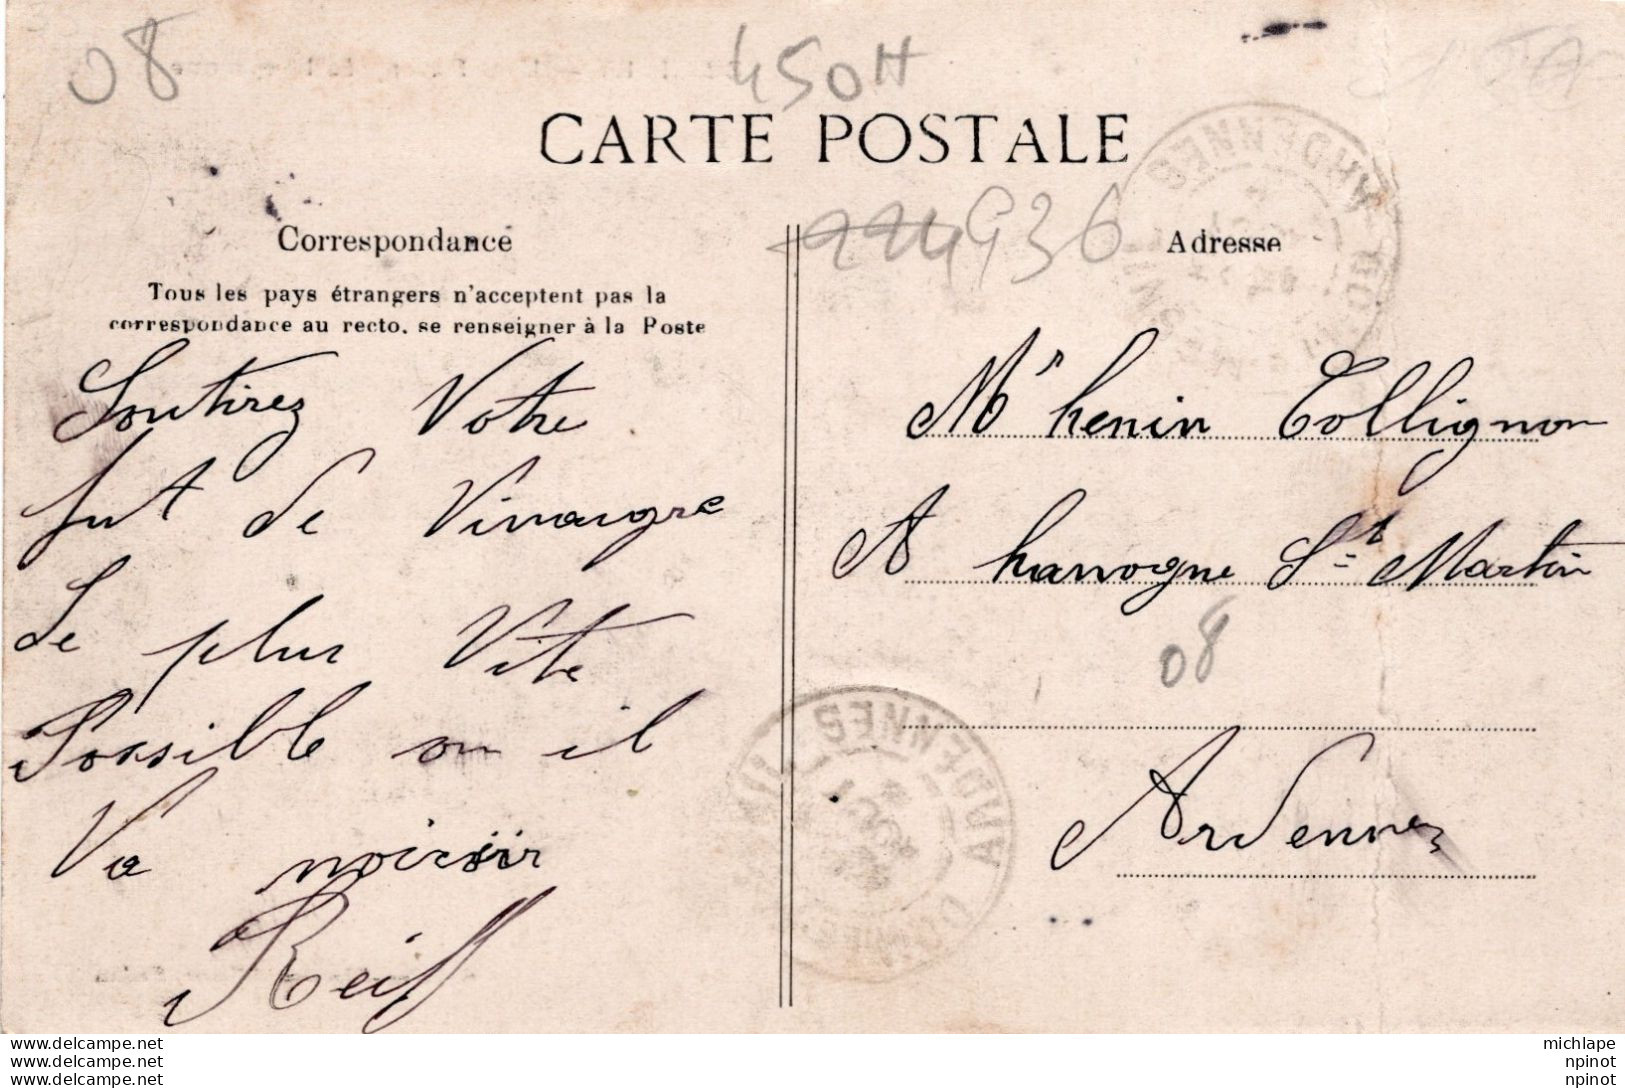 08
450H
CARTE POSTALE
936
Correspondance
Adresse
Tous les pays étrangers n'acceptent pas la
correspondance au recto. se renseigner à la Poste
Soutirez Votre
fut de Vinaigre
Le plus Vite
Possible ou il
Va noirsir
Reiff
Mr henin Collignon
A hannogne St Martin
08
Ardennes
ARDENNES
ARDENNES
michlape
npinot
npinot
delcampe.net
delcampe.net
delcampe.net